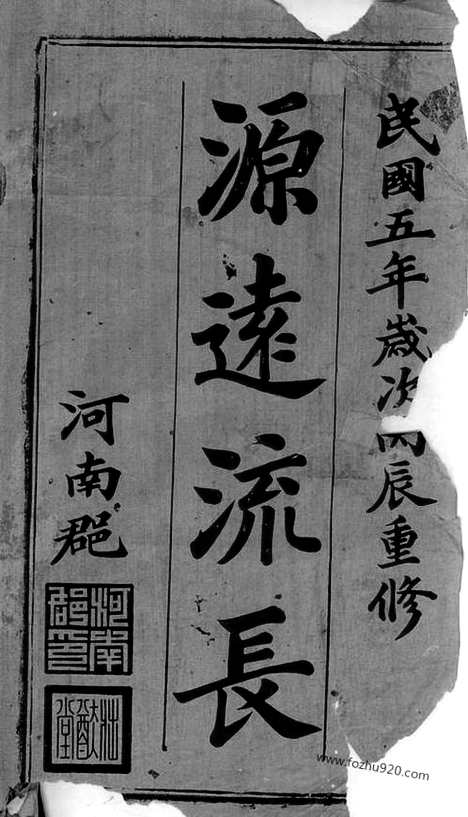 民國五年歲次丙辰重修
源遠流長
河南郡
河南郡印
獻堂
www.fozhu920.com